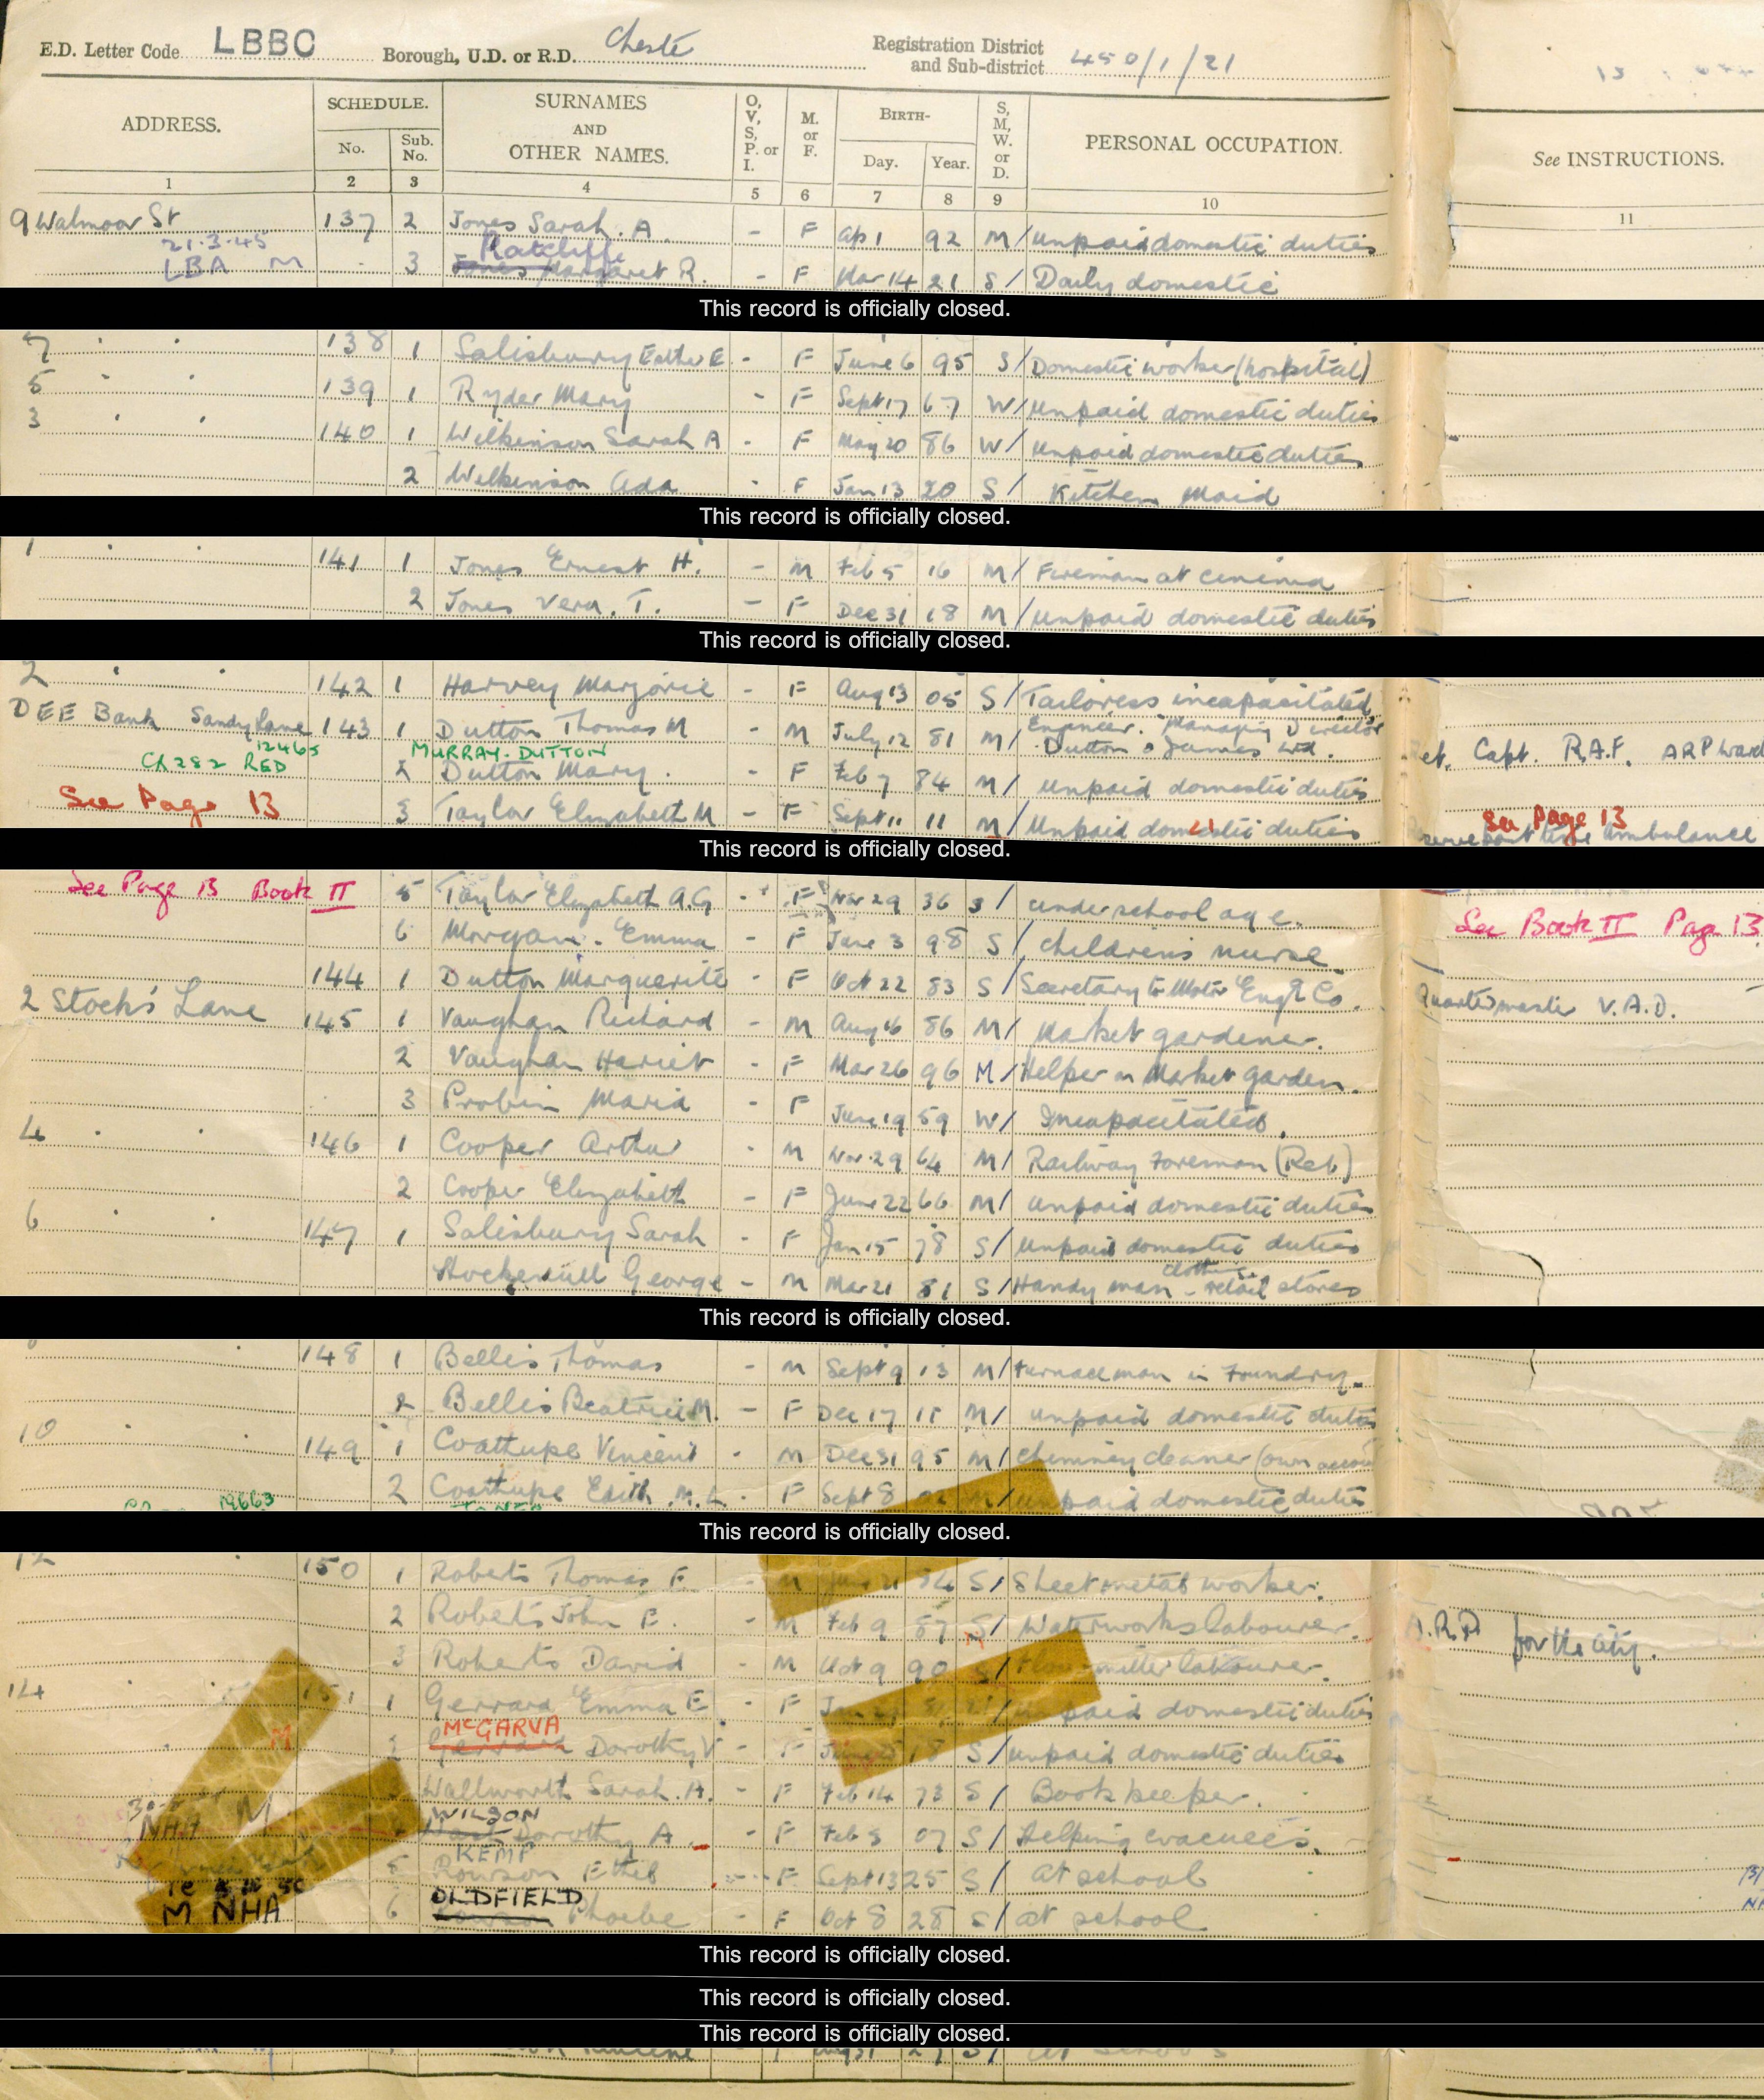 E.D. Letter Code LBBC Borough, U.D. or R.D. Cheste Registration District and Sub-district 450/1/21
ADDRESS. SCHEDULE. No. Sub. No. SURNAMES AND OTHER NAMES. O, V, S, P. or I. M. or F. BIRTH- Day. Year. S, M, W. or D. PERSONAL OCCUPATION. See INSTRUCTIONS.
1 2 3 4 5 6 7 8 9 10 11
9 Walmoor St 137 2 Jones Sarah. A. - F Ap 1 92 M / Unpaid domestic duties
21.3.45 Ratcliffe
LBA M 3 Jones Margaret R. - F Mar 14 21 S / Daily domestic
This record is officially closed.
7 " " 138 1 Salisbury Esther E - F June 6 95 S / Domestic worker (hospital)
5 " " 139 1 Ryder Mary - F Sept 17 67 W / Unpaid domestic duties
3 " " 140 1 Wilkinson Sarah A - F May 20 86 W / Unpaid domestic duties
2 Wilkinson Ada - F Jan 13 20 S / Kitchen Maid
This record is officially closed.
1 " " 141 1 Jones Ernest H. - M Feb 5 16 M / Fireman at cinema
2 Jones Vera. T. - F Dec 31 18 M / Unpaid domestic duties
This record is officially closed.
2 " " 142 1 Harvey Marjorie - F Aug 13 05 S / Tailoress incapacitated
DEE Bank Sandy Lane 143 1 Dutton Thomas M - M July 12 81 M / Engineer. Managing Director Dutton & James Ltd. Capt. R.A.F. ARP Ward
12465 MURRAY-DUTTON
CR282 RED 2 Dutton Mary. - F Feb 7 84 M / Unpaid domestic duties
See Page 13 3 Taylor Elizabeth M - F Sept 11 11 M / Unpaid domestic duties See Page 13 ambulance
This record is officially closed.
See Page 13 Book II 5 Taylor Elizabeth A.G - F Nov 29 36 S / under school age.
6 Morgan. Emma - F June 3 98 S / Children's nurse. See Book II Page 13
144 1 Dutton Marguerite - F Oct 22 83 S / Secretary to Motor Eng'r Co. Quartermaster V.A.D.
2 Stocks Lane 145 1 Vaughan Richard - M Aug 16 86 M / Market gardener.
2 Vaughan Hariet - F Mar 26 96 M / Helper in Market garden.
3 Probin Maria - F June 19 59 W / Incapacitated.
4 " " 146 1 Cooper Arthur - M Nov 29 64 M / Railway Foreman (Ret)
2 Cooper Elizabeth - F June 22 66 M / Unpaid domestic duties
6 " " 147 1 Salisbury Sarah - F Jan 15 78 S / Unpaid domestic duties
Hockenhull George - M Mar 21 81 S / Handy man - clothing retail stores
This record is officially closed.
148 1 Bellis Thomas - M Sept 9 13 M / Furnaceman in Foundry.
2 Bellis Beatrice M. - F Dec 17 11 M / Unpaid domestic duties
10 " 149 1 Coathupe Vincent - M Dec 31 95 M / Chimney cleaner (own account
2 Coathupe Edith. M. L - F Sept 8 M / Unpaid domestic duties
19663
This record is officially closed.
12 150 1 Roberts Thomas F. - M June 21 84 S / Sheet metal worker.
2 Roberts John E. - M Feb 9 87 S / Waterworks labourer. A.R.P for the city.
M
3 Roberts David - M Oct 9 90 S / Flour miller labourer.
14 151 1 Gerrard Emma E - F Jan Unpaid domestic duties
McGARVA
M 2 Gerrard Dorothy V - F 18 S / Unpaid domestic duties
Wallworth Sarah. A. - F Feb 14 73 S / Book keeper.
WILSON
NHA M Dorothy A - F Feb 5 07 S / Helping evacuees.
KEMP
5 Rowson Ethel - F Sept 13 25 S / at school
OLDFIELD
M NHA 6 Rowson Phoebe - F Oct 8 28 S / at school
This record is officially closed.
This record is officially closed.
This record is officially closed.